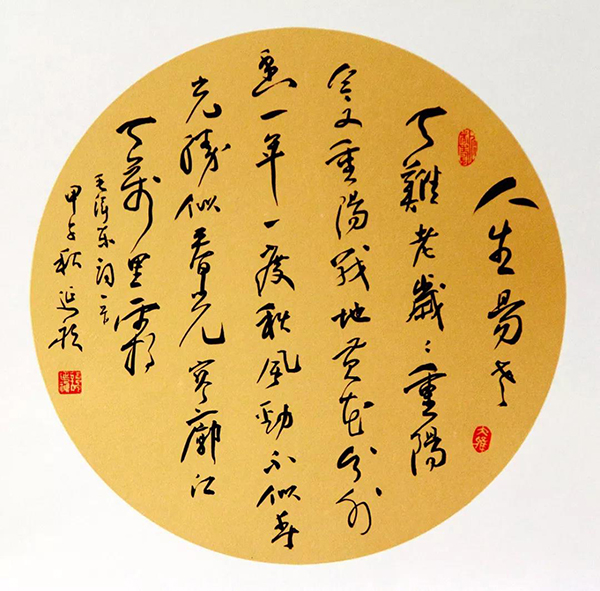 人生易老
天難老歲々重陽
今又重陽战地黄花分外
香一年一度秋風勁不似春
光勝似春光寥廓江
天萬里霜
毛澤东詞
甲午秋延